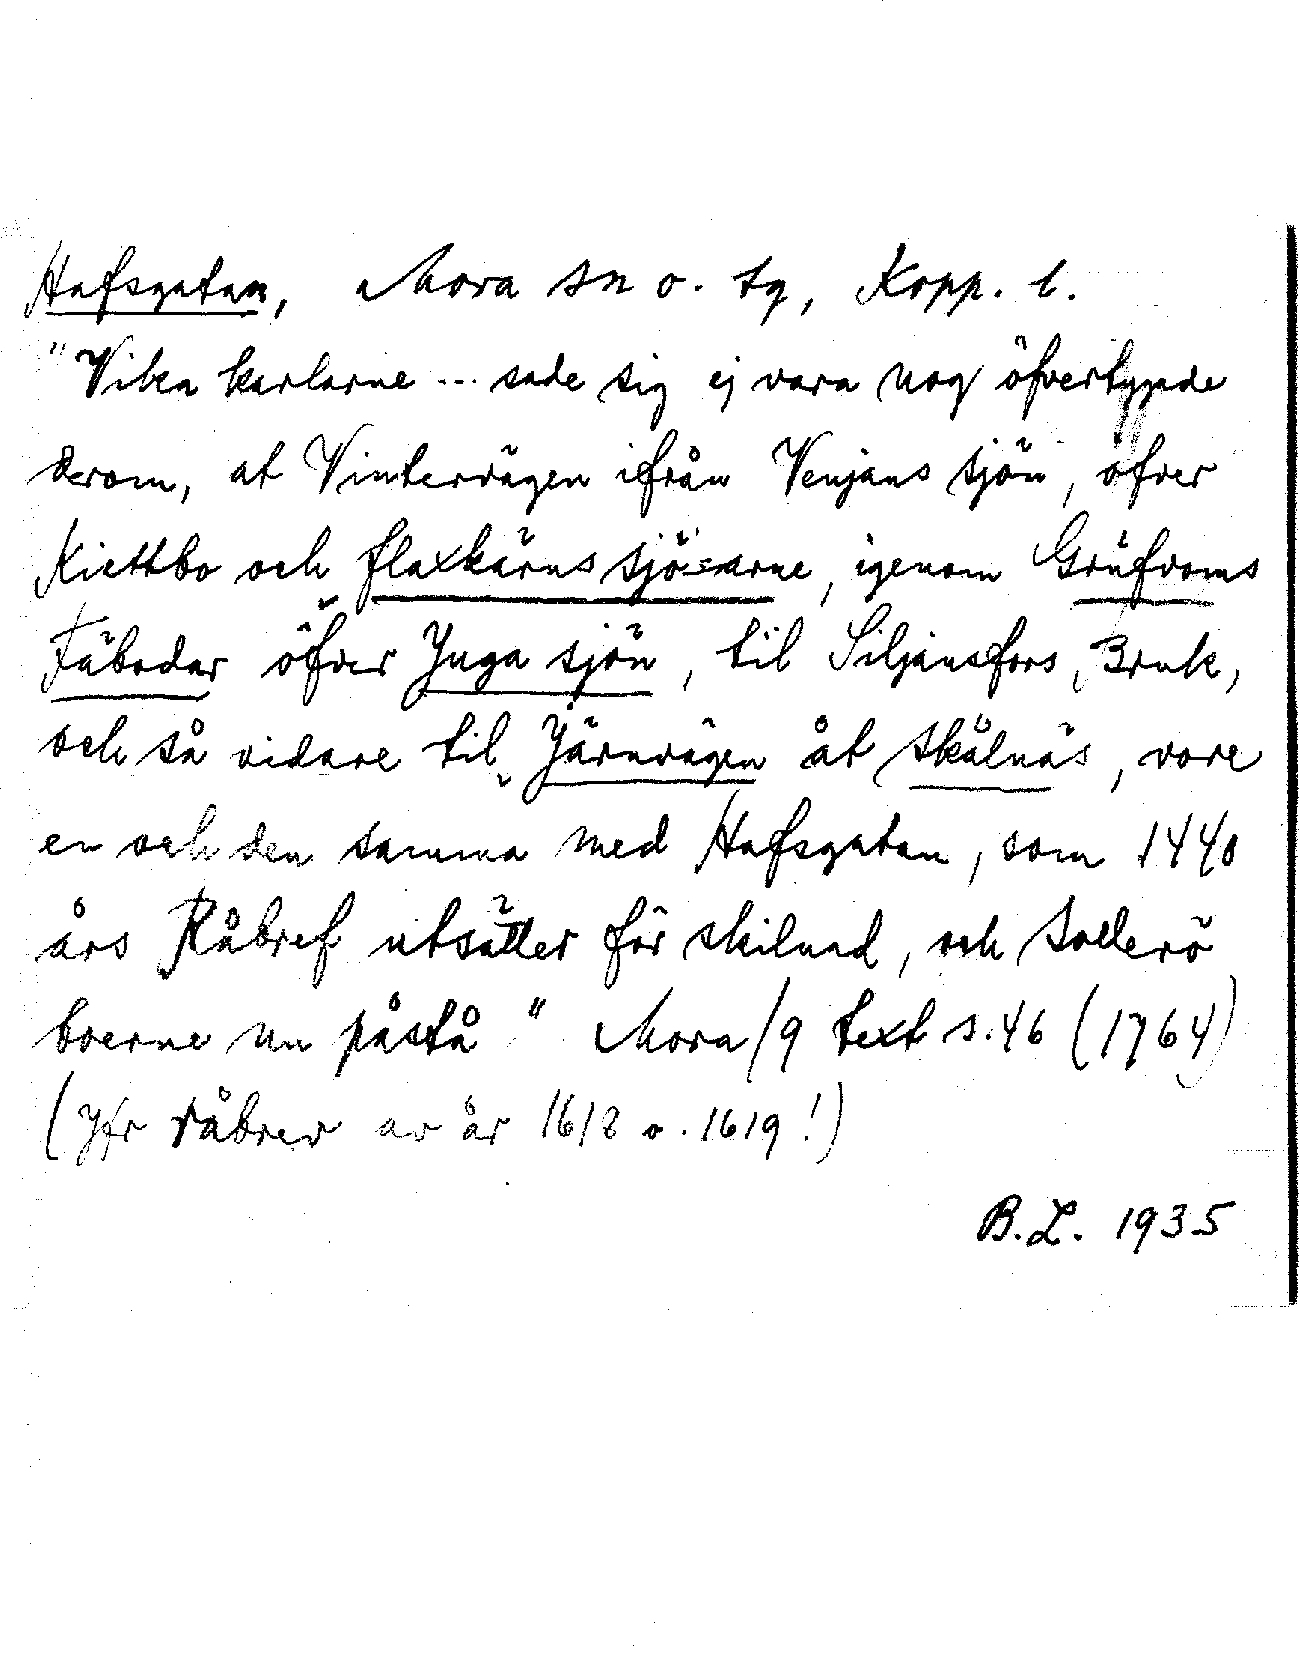 Hafsgatan, Mora sn o. tg, Kopp. l.
"Vika karlarne ... sade sig ej vara nog öfvertygade
derom, at Vintervägen ifrån Venjans sjön, öfver
Kiettbo och flaxkärns sjöarne, igenom Gräfvoms
Fäbodar öfver Juga sjön, til Siljansfors Bruk,
och så vidare til Järnvägen åt Skålnäs, vore
en och den samma med Hafsgatan, som 1440
års Råbref utsätter för skilnad, och Sollerö
boerne nu påstå" Mora/9 text s. 46 (1764)
(Jfr råbrev av år 1618 o. 1619!)
B.L. 1935